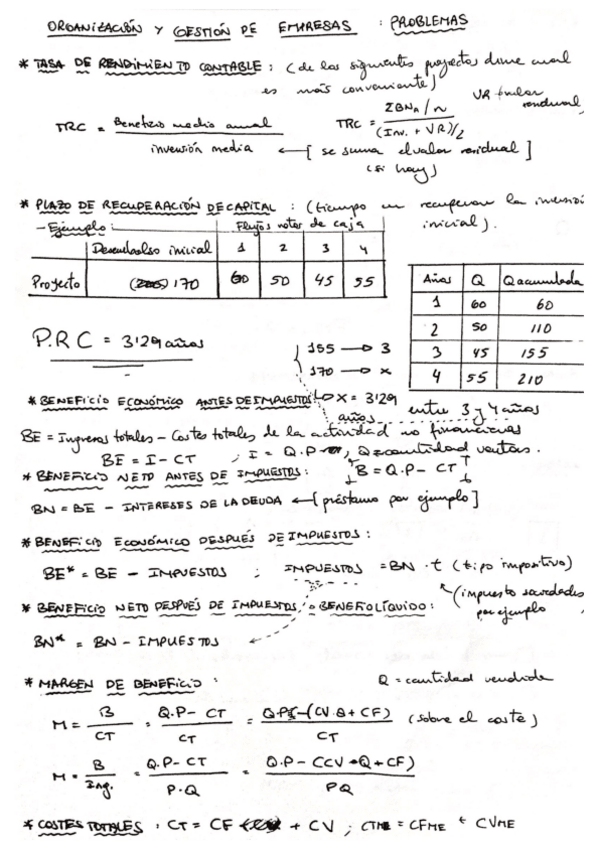 ORGANIZACIÓN Y GESTIÓN DE EMPRESAS : PROBLEMAS
* TASA DE RENDIMIENTO CONTABLE : (de los siguientes proyectos dime cual
es más conveniente)
VR = valor
residual
TRC = Beneficio medio anual / inversión media
TRC = ΣBNA / n / (Inv. + VR)/2
← [se suma el valor residual]
(si hay)
* PLAZO DE RECUPERACIÓN DE CAPITAL : (tiempo en recuperar la inversió
inicial).
- Ejemplo: Flujos netos de caja
Desembolso inicial 1 2 3 4
Proyecto 170 60 50 45 55
Años Q Q acumulada
1 60 60
2 50 110
3 45 155
4 55 210
P.R.C = 3'29 años
155 → 3
170 → x
x = 3'29
años
entre 3 y 4 años
* BENEFICIO ECONÓMICO ANTES DE IMPUESTOS:
BE = Ingresos totales - Costes totales de la actividad no financieras
BE = I - CT ; I = Q.P , Q = cantidad ventas.
* BENEFICIO NETO ANTES DE IMPUESTOS: B = Q.P - CT
BN = BE - INTERESES DE LA DEUDA ← [préstamo por ejemplo]
* BENEFICIO ECONÓMICO DESPUÉS DE IMPUESTOS :
BE* = BE - IMPUESTOS ; IMPUESTOS = BN . t (tipo impositivo)
(impuesto sociedades
por ejemplo
* BENEFICIO NETO DESPUÉS DE IMPUESTOS, o BENEF. LÍQUIDO :
BN* = BN - IMPUESTOS
* MARGEN DE BENEFICIO : Q = cantidad vendida
M = B / CT = Q.P - CT / CT = Q.P - (CV.Q + CF) / CT (sobre el coste)
M = B / Ing. = Q.P - CT / P.Q = Q.P - CCV * Q + CF) / PQ
* COSTES TOTALES : CT = CF + CV ; CTME = CFME + CVME